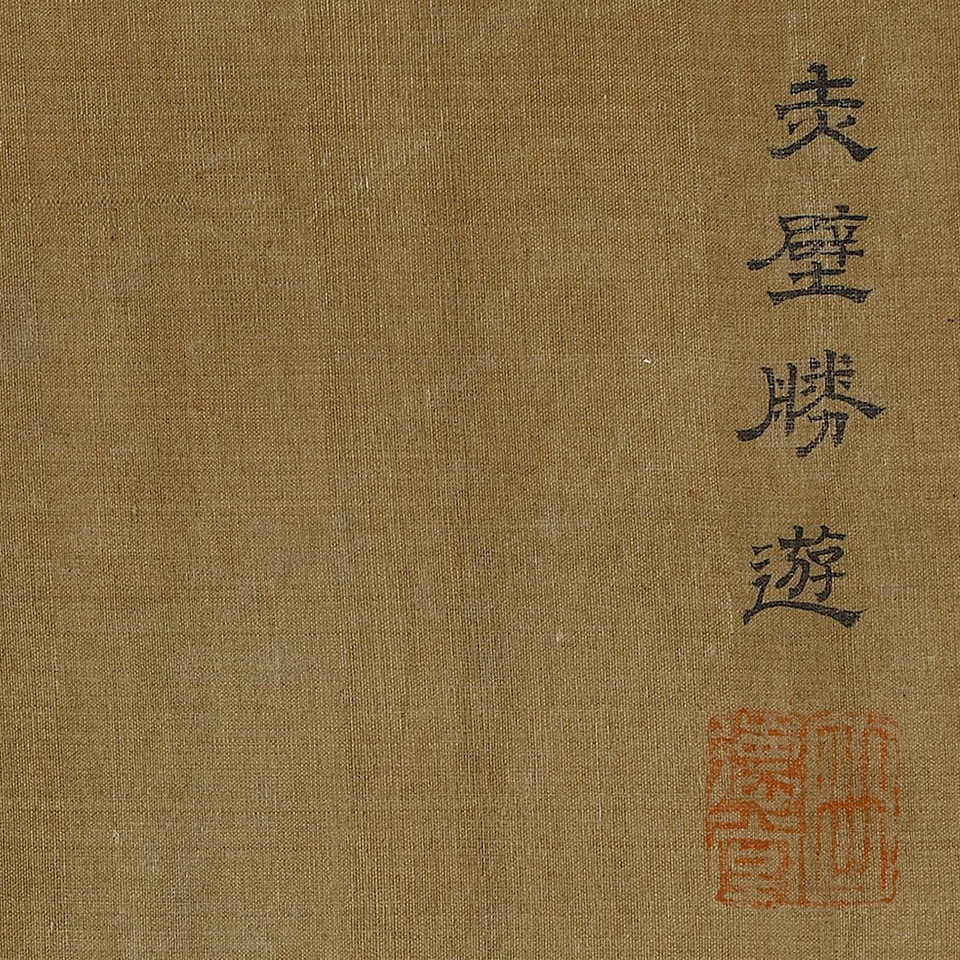 赤壁勝遊